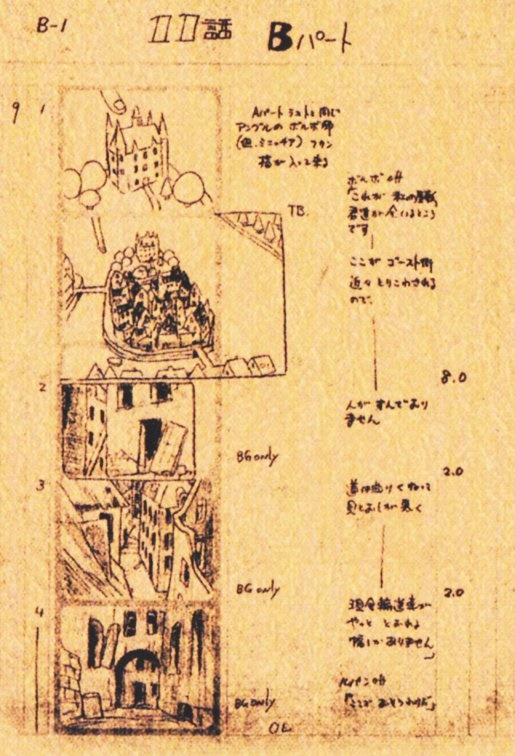 B-1
11話 Bパート
9
1
Aパートラストと同じ
アングルの ボルボ邸
(但、ミニチュア) フラン
指が入って来る
T.B.
ボルボ off
「これが 私の屋敷
君達が今いるところ
です
ここが ゴースト街
近々とりこわされる
ので、
8.0
2
人が すんでおり
ません
BG only
2.0
3
道は曲りくねって
見とおしが悪く
BG only
2.0
4
現金輸送車が
やっと とおれる
幅しかありません
」
ルパン off
BG only
OL